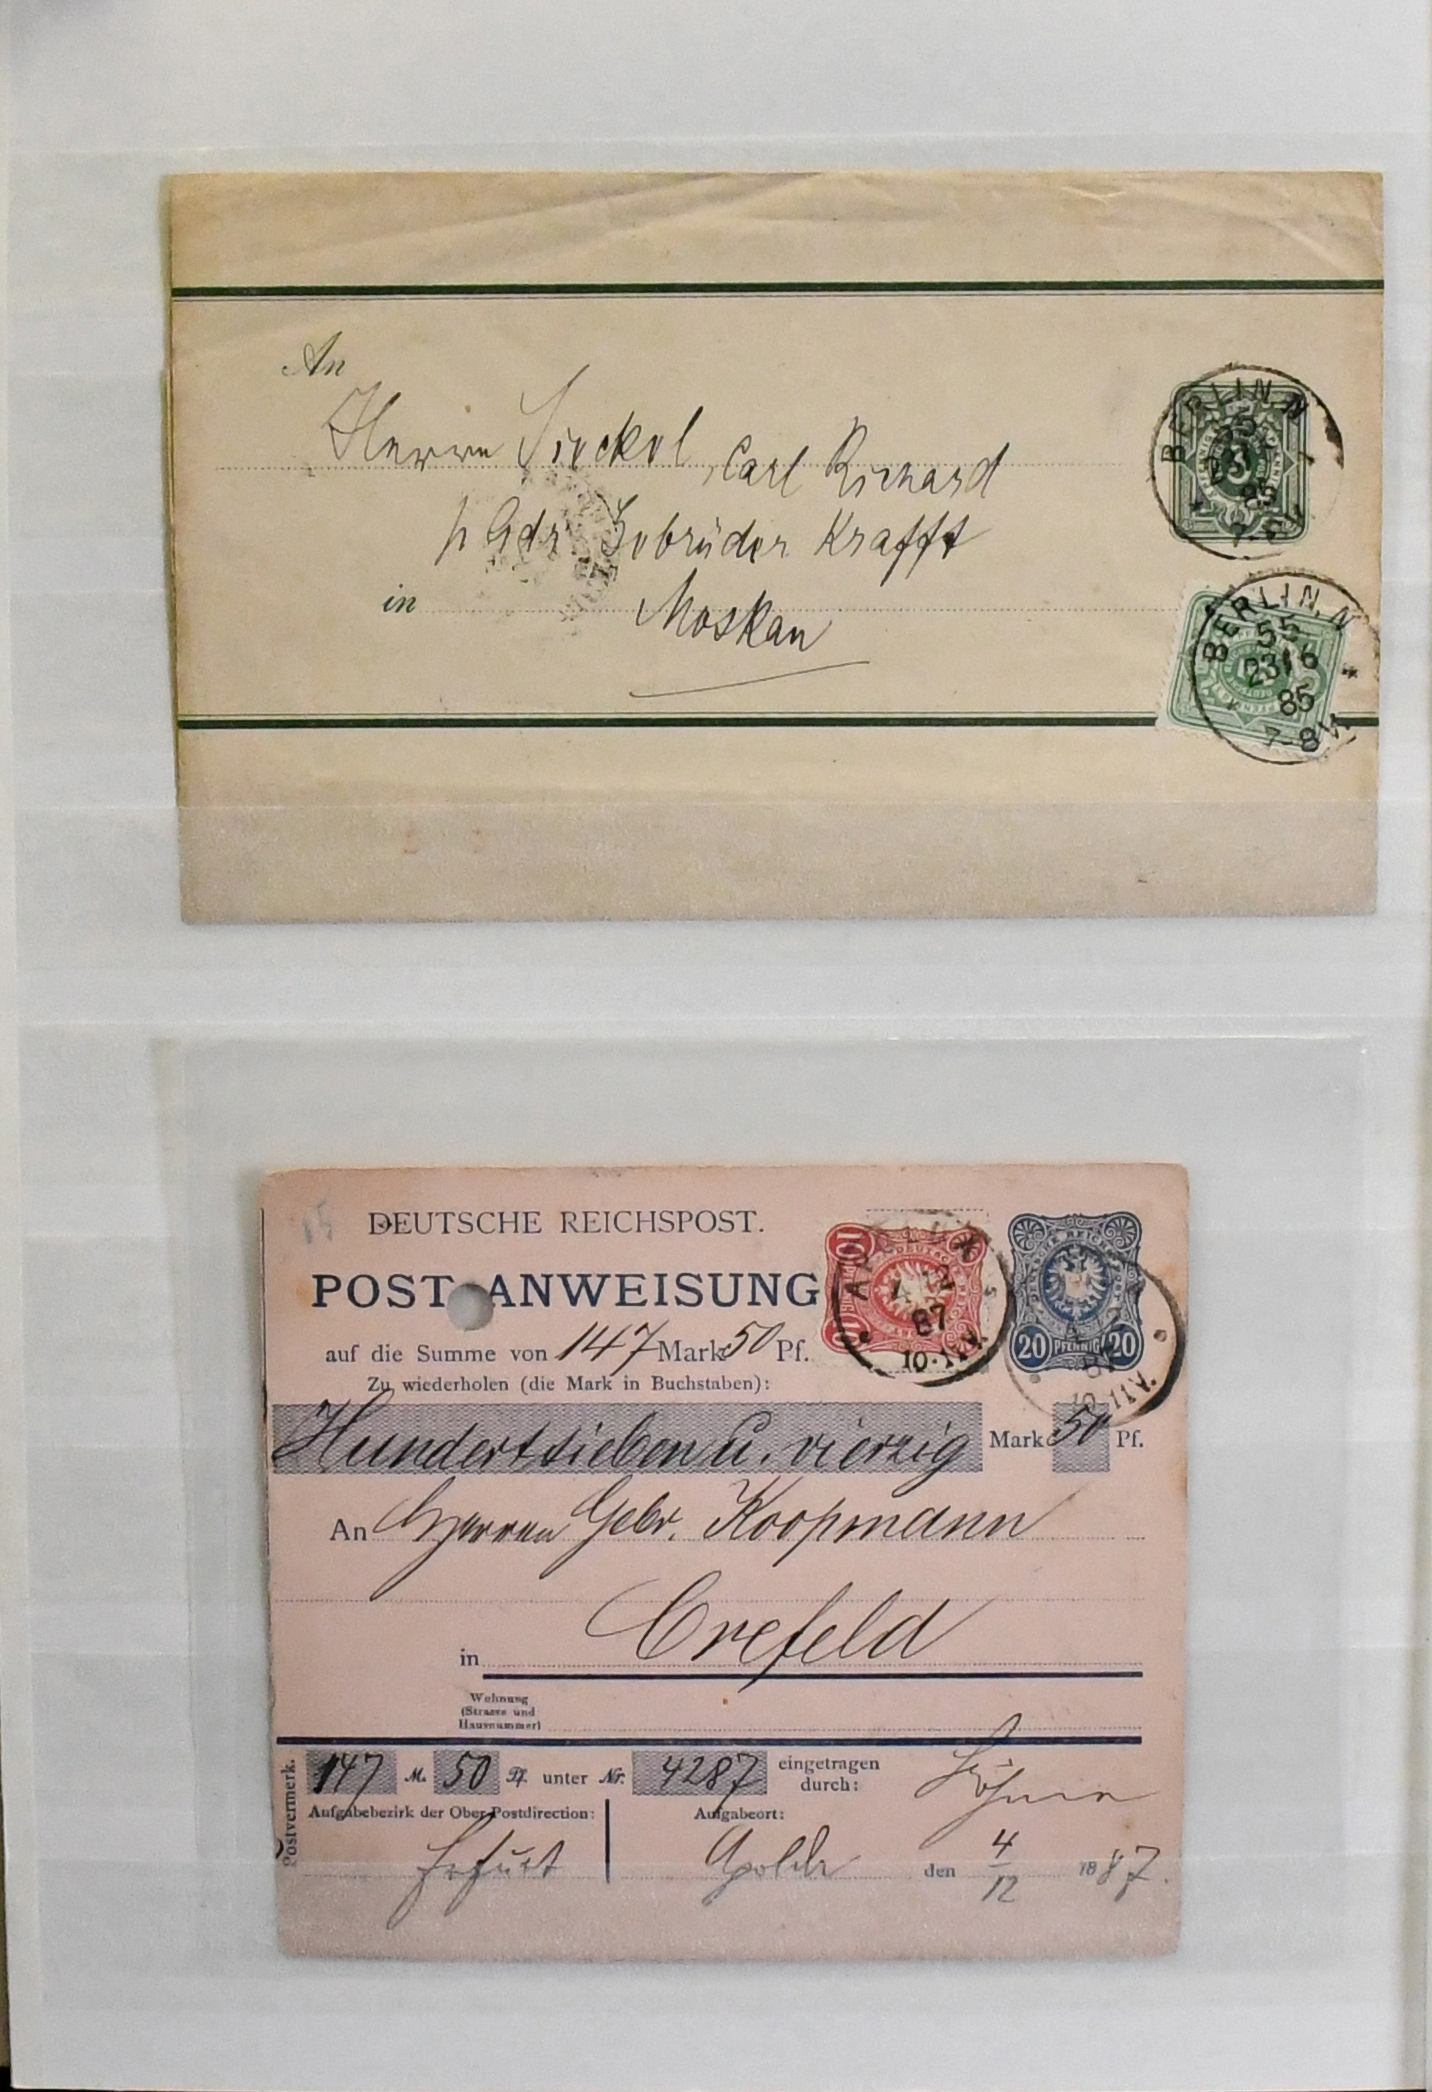 An
Herrn Carl Richard
p Adr. Gebrüder Krafft
in Moskau
BERLIN.N
55
85
BERLIN.N
55
23/6
85
7-8N.
15
DEUTSCHE REICHSPOST.
POST-ANWEISUNG
auf die Summe von 147 Mark 50 Pf.
Zu wiederholen (die Mark in Buchstaben):
Hundertsieben u. vierzig Mark 50 Pf.
10 10
87
20 PFENNIG 20
An Herren Gebr. Koopmann
in Crefeld
Wohnung
(Strasse und
Hausnummer)
Postvermerk.
147 M. 50 Pf. unter Nr. 4287 eingetragen
durch:
Aufgabebezirk der Ober-Postdirection: Aufgabeort:
Erfurt Apolda den 4/12 1887.